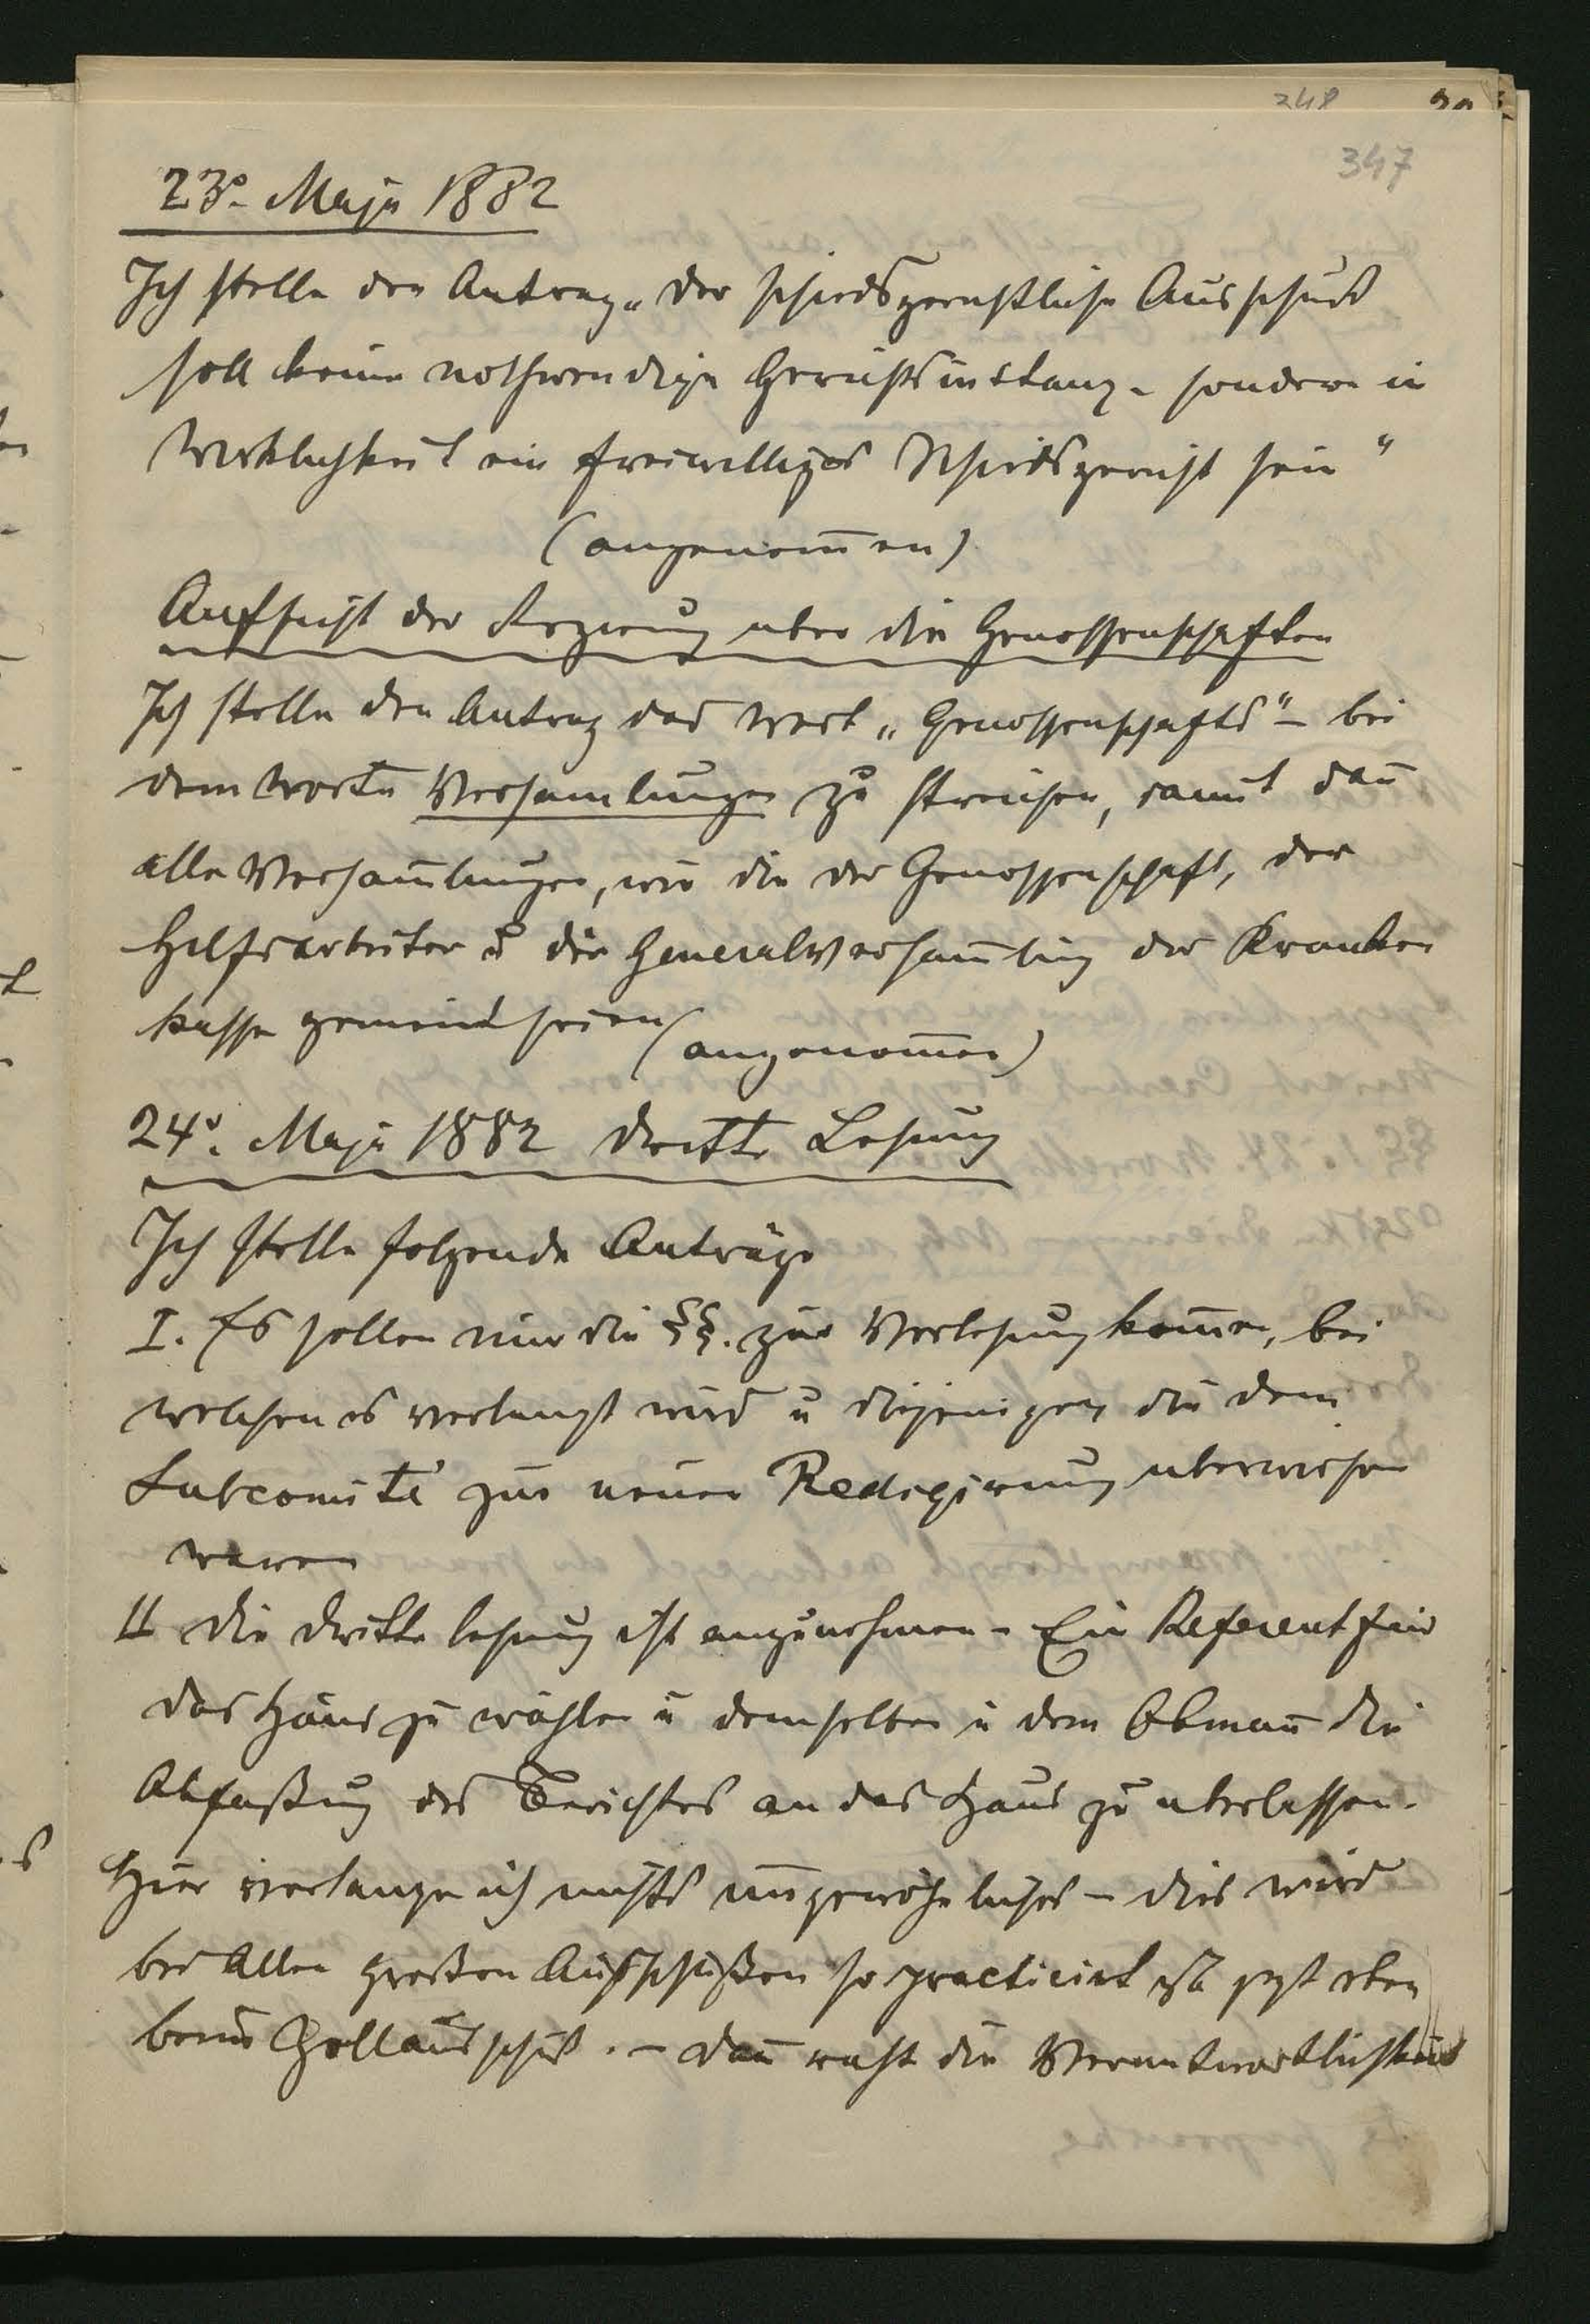 248
347
23º Maja 1882
Ich stelle den Antrag „der schiedsgerichtliche Ausschuß
soll keine nothwendige Gerichtsinstanz – sondern in
Wirklichkeit ein freiwilliges Schiedsgericht sein“
(angenom̄en)
Aufsicht der Regierung uber die Genossenschaften
Ich stelle den Antrag das Wort „Genossenschafts“ – bei
dem Worte Versamlungen zu streichen, damit dan̄
alle Versam̄lungen, wie die der Genossenschaft, der
Hilfsarbeiter u die Generalversam̄lung der Kranken
kasse gemeint seien (angenom̄en)
24º. Maja 1882 dritte Lesung
Ich stelle folgende Anträge
I. Es sollen nur die §§. zur Verlesung kom̄en, bei
welchen es verlangt wird u diejenigen die dem
Subcomité zur neuen Redigirung uberwiesen
waren
II die dritte Lesung ist anzunehmen – Ein Referent für
das Haus zu wählen u demselben u dem Obman̄ die
Abfaßung des Berichtes an das Haus zu uberlassen.
Hier verlange ich nichts ungewöhnliches – dies wird
bei Allen großen Ausschüßen so practicirt so jezt eben
beim Zollausschuß. – dan̄ die Verantwortlichkeit